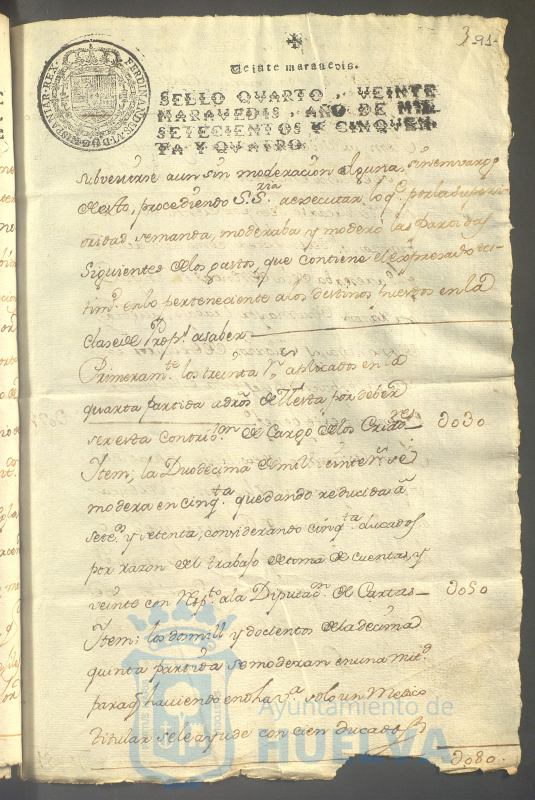 391
Veinte maravedis.
SELLO QVARTO, VEINTE
MARAVEDIS, AÑO DE MIL
SETECIENTOS Y CINQVEN-
TA Y QVATRO.
FERDINANDUS VI D.G. HISPANIAR. REX
subvenirse aun sin moderacion alguna, sin emvargo
de esto, procediendo S.Sria. a executar lo q.e por la Superi-
oridad se manda, moderaba y modero las Partidas
Siguientes de los gastos que contiene el expresado tes-
tim.o en lo perteneciente a los destinos nuevos en la
clase de Prop.s a saber
Primeram.te los treinta r.s aplicados en la
quarta partida a dros de Visita por deber
ser esta Contrib.on de Cargo de los
d030
Item; la Duodecima de mil veinte r.s se
modera en cinq.ta quedando reducida a
setec.s y setenta, considerando cinq.ta ducados
por razon del trabajo de toma de cuentas, y
veinte con resp.to a la Diputac.on de Cartas
d050
Item; los dosmill y docientos de la decima
quinta partida se moderan en una mitd.
para q. haviendo en dha v.a solo un Medico
titular se le ayude con cien ducados
d080
Ayuntamiento de
HUELVA